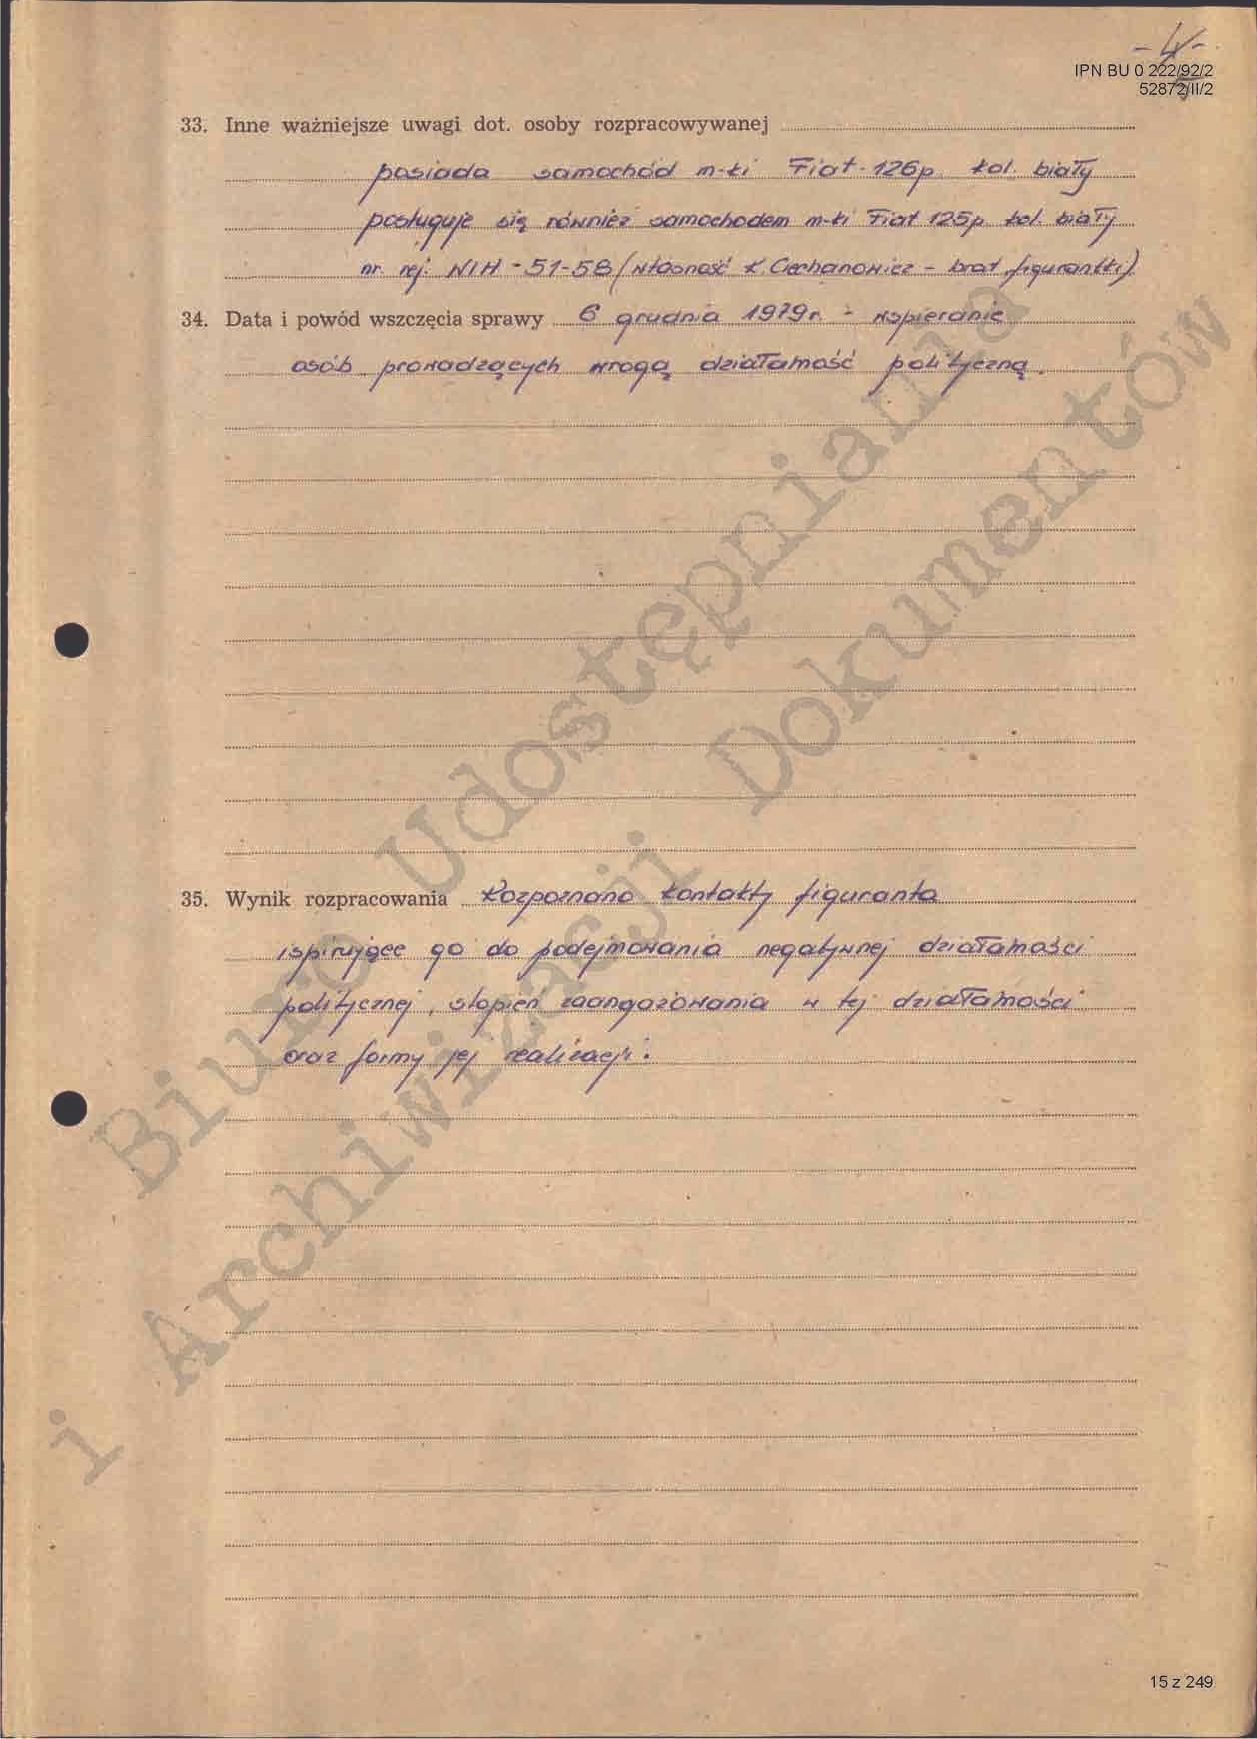 - 4 -
IPN BU 0 222/92/2
52872/II/2
33. Inne ważniejsze uwagi dot. osoby rozpracowywanej
posiada samochód m-ki Fiat-126p. kol. biały
posługuje się również samochodem m-ki Fiat 125p kol. biały
nr. rej. WIH-51-58 (własność K. Ciechanowicz - brat figurantki)
34. Data i powód wszczęcia sprawy 6 grudnia 1979r. - wspieranie
osób prowadzących wrogą działamość polityczną.
35. Wynik rozpracowania Rozpoznano kontakty figuranta
ispirujące go do podejmowania negatywnej działamości
politycznej, stopień zaangażowania w tej działamości
oraz formy jej realizacji.
Biuro Udostępniania
i Archiwizacji Dokumentów
15 z 249